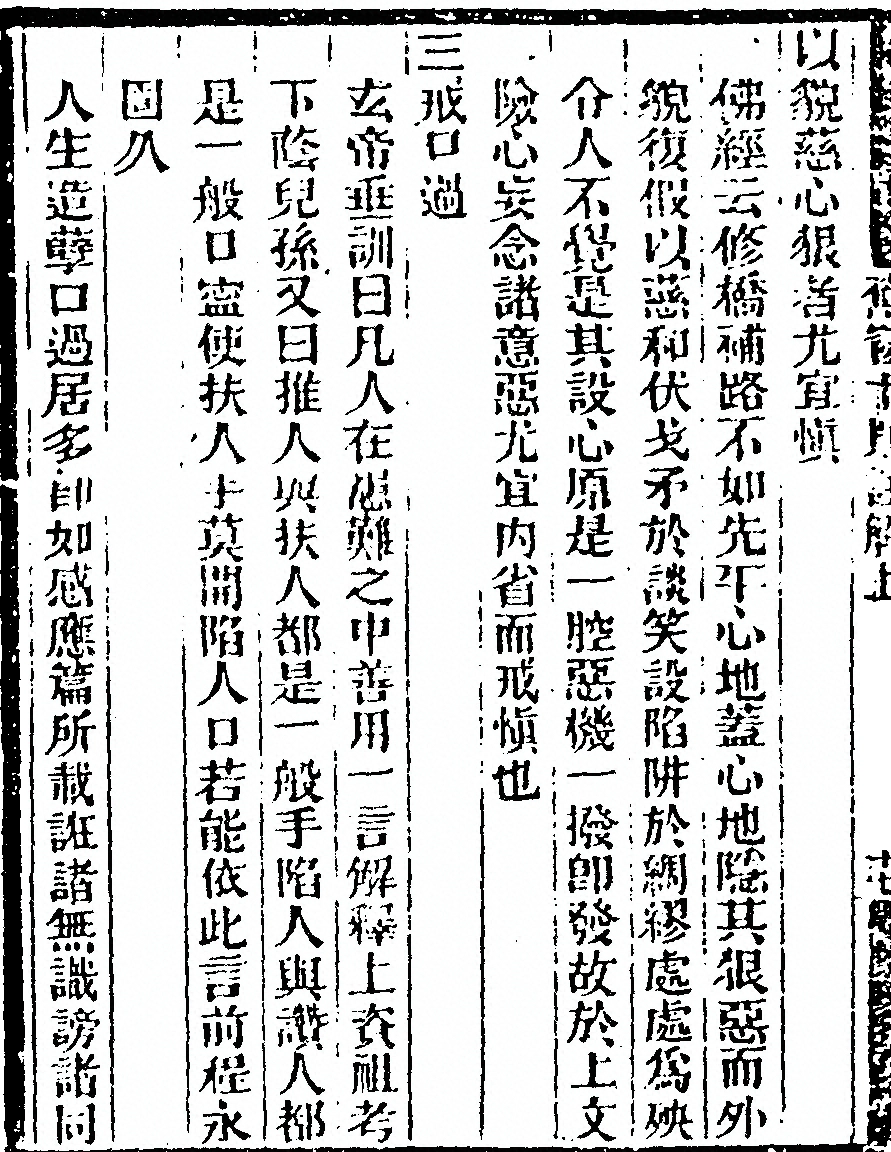 以貌慈心狠者尤宜慎
佛經云修橋補路不如先平心地蓋心地隱其狠惡而外
貌復假以慈和伏戈矛於談笑設陷阱於綢繆處處為殃
令人不覺是其設心原是一腔惡機一撥卽發故於上文
險心妄念諸意惡尤宜內省而戒慎也
三戒口過
玄帝垂訓曰凡人在患難之中善用一言解釋上資祖考
下蔭兒孫又曰推人與扶人都是一般手陷人與讚人都
是一般口寧使扶人手莫開陷人口若能依此言前程永
固久
人生造孽口過居多卽如感應篇所載誑諸無識謗諸同